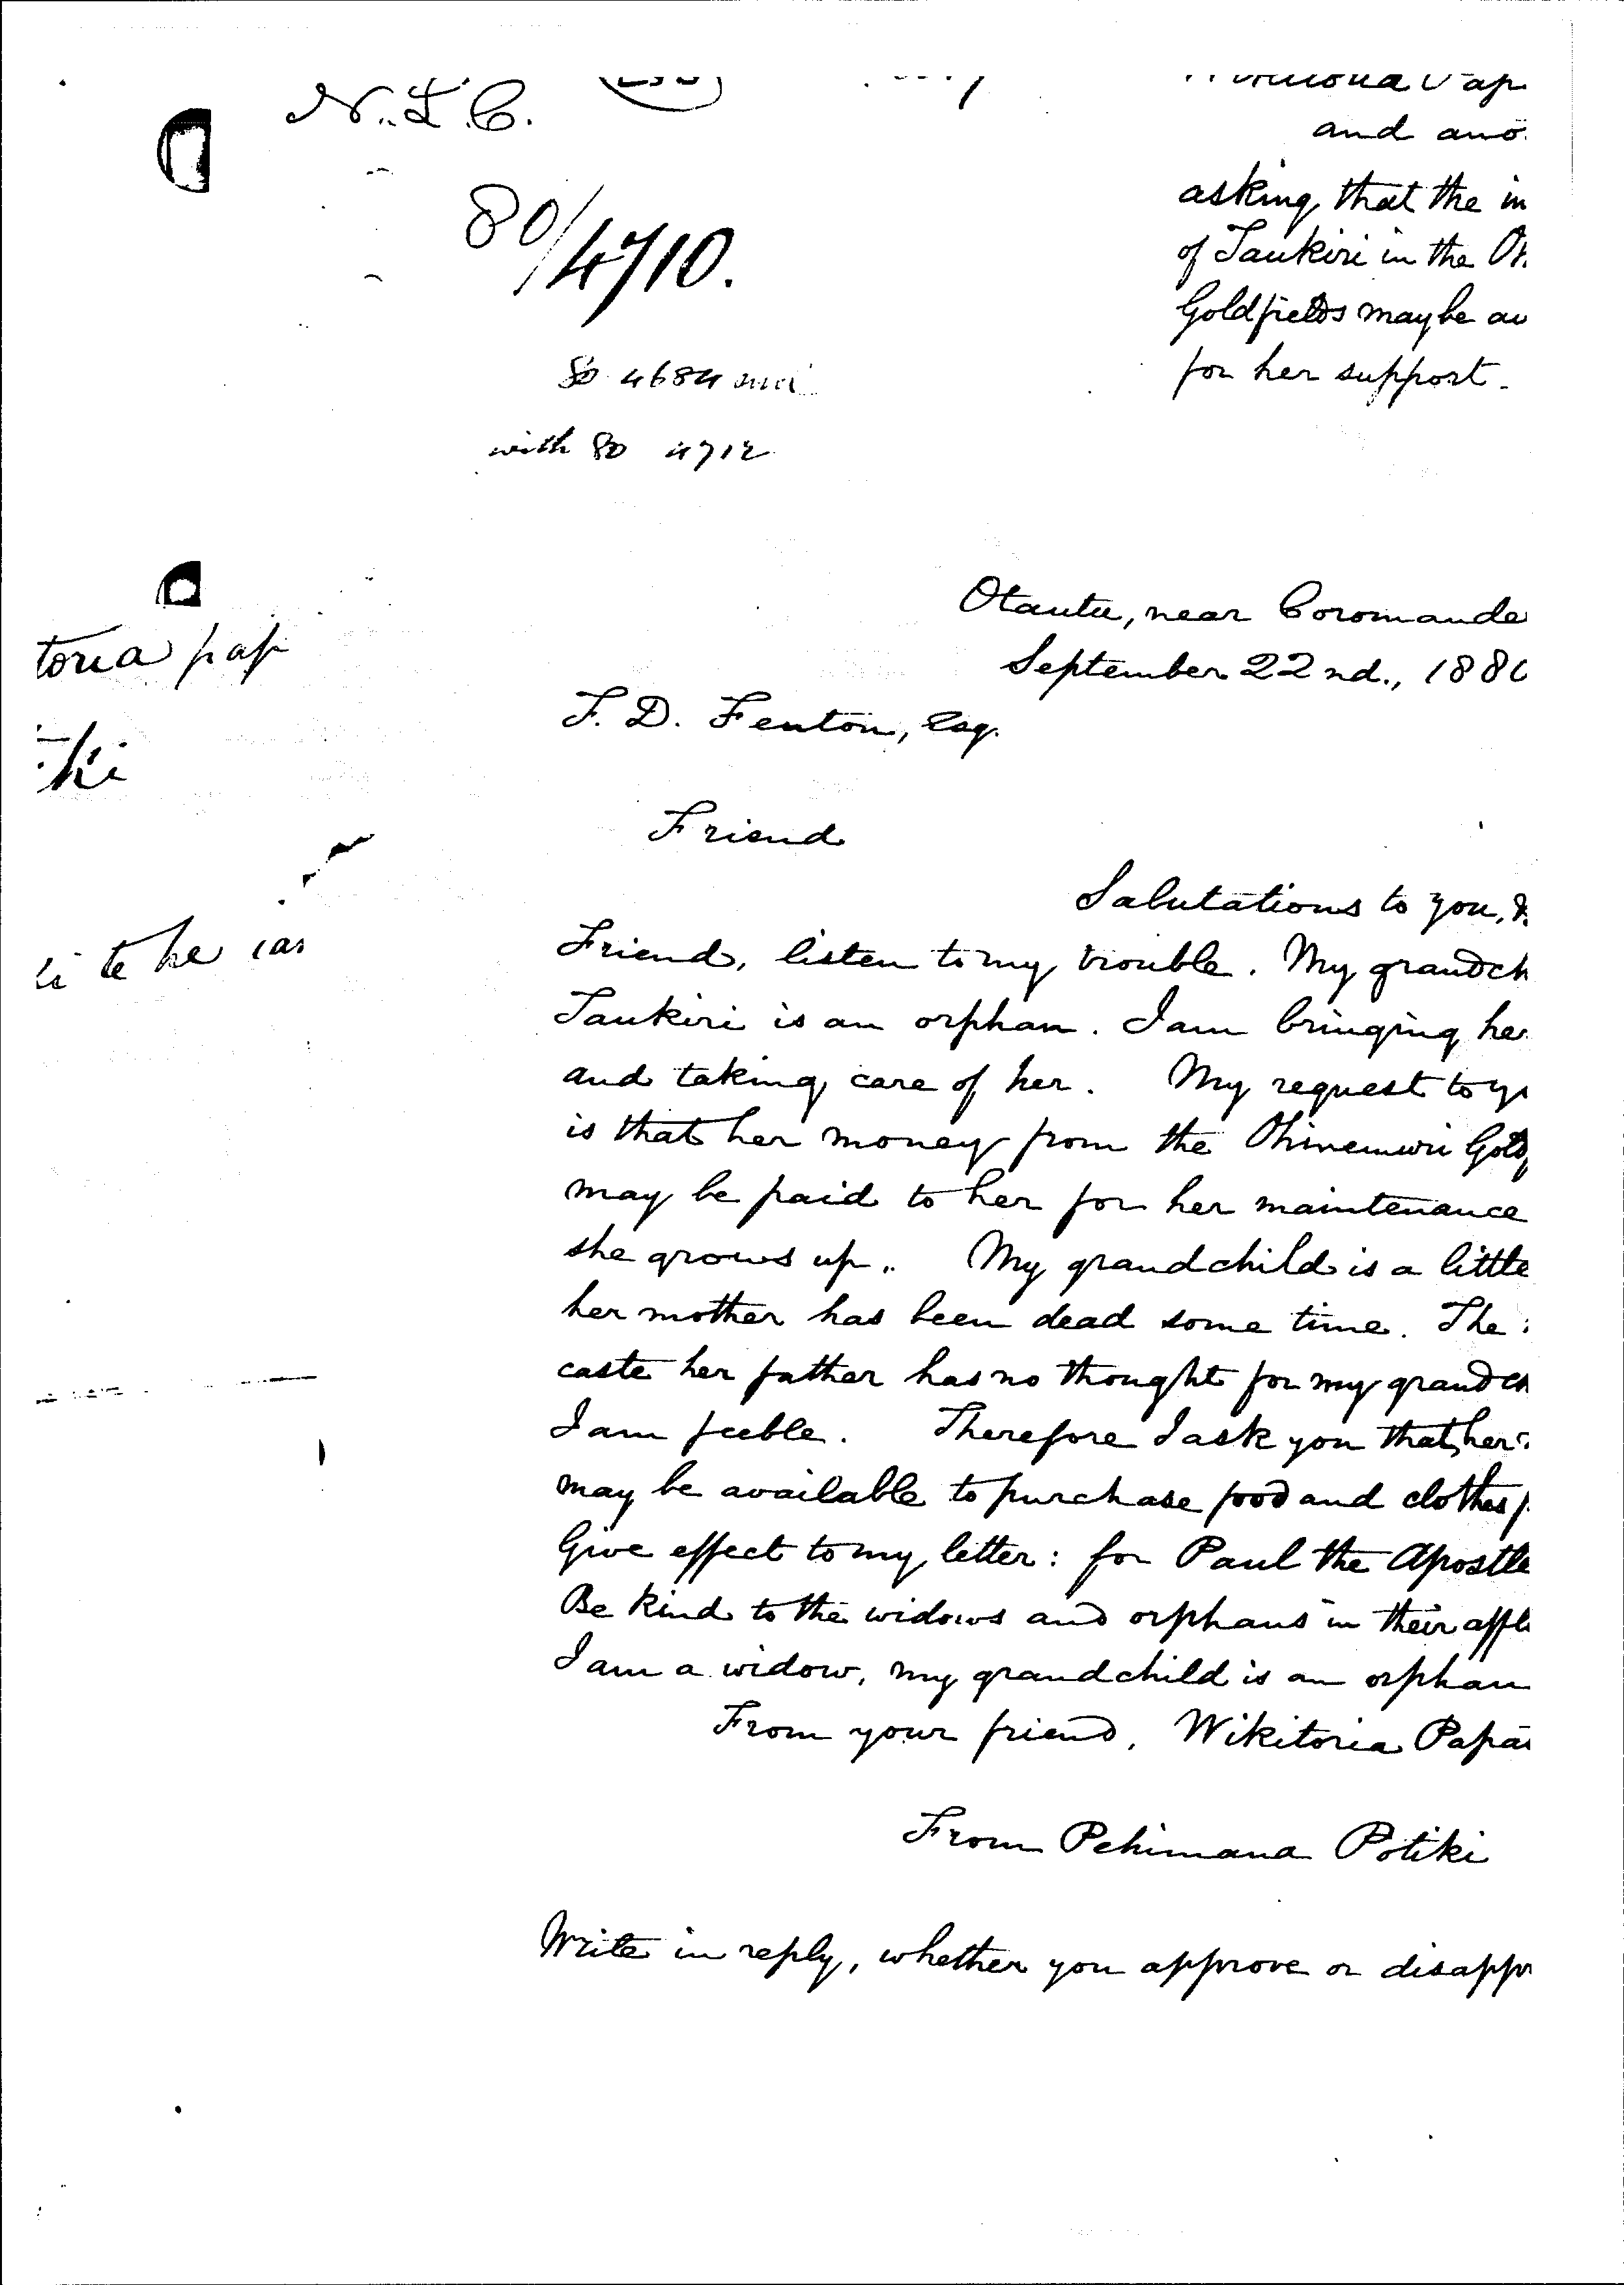 N.L.C.
and ano
80/4710.
asking that the in
of Taukiri in the Oh
Goldfields may be aw
for her support.
80 4684 and
with 80 4712
Otautu, near Coromande
September 22nd., 188
F. D. Fenton, Esq.
toria pap
ki
Friend
Salutations to you, &
Friend, listen to my trouble. My grandch
ki te he
Taukiri is an orphan. I am bringing he
and taking care of her. My request to yo
is that her money from the Ohinemuri Gold
may be paid to her for her maintenance
she grows up. My grandchild is a little
her mother has been dead some time. The
caste her father has no thought for my grandch
I am feeble. Therefore I ask you that her
may be available to purchase food and clothes f
Give effect to my letter: for Paul the Apostle
Be kind to the widows and orphans in their affli
I am a widow, my grandchild is an orphan
From your friend, Wikitoria Papa
From Pehimana Potiki
Write in reply, whether you approve or disappr